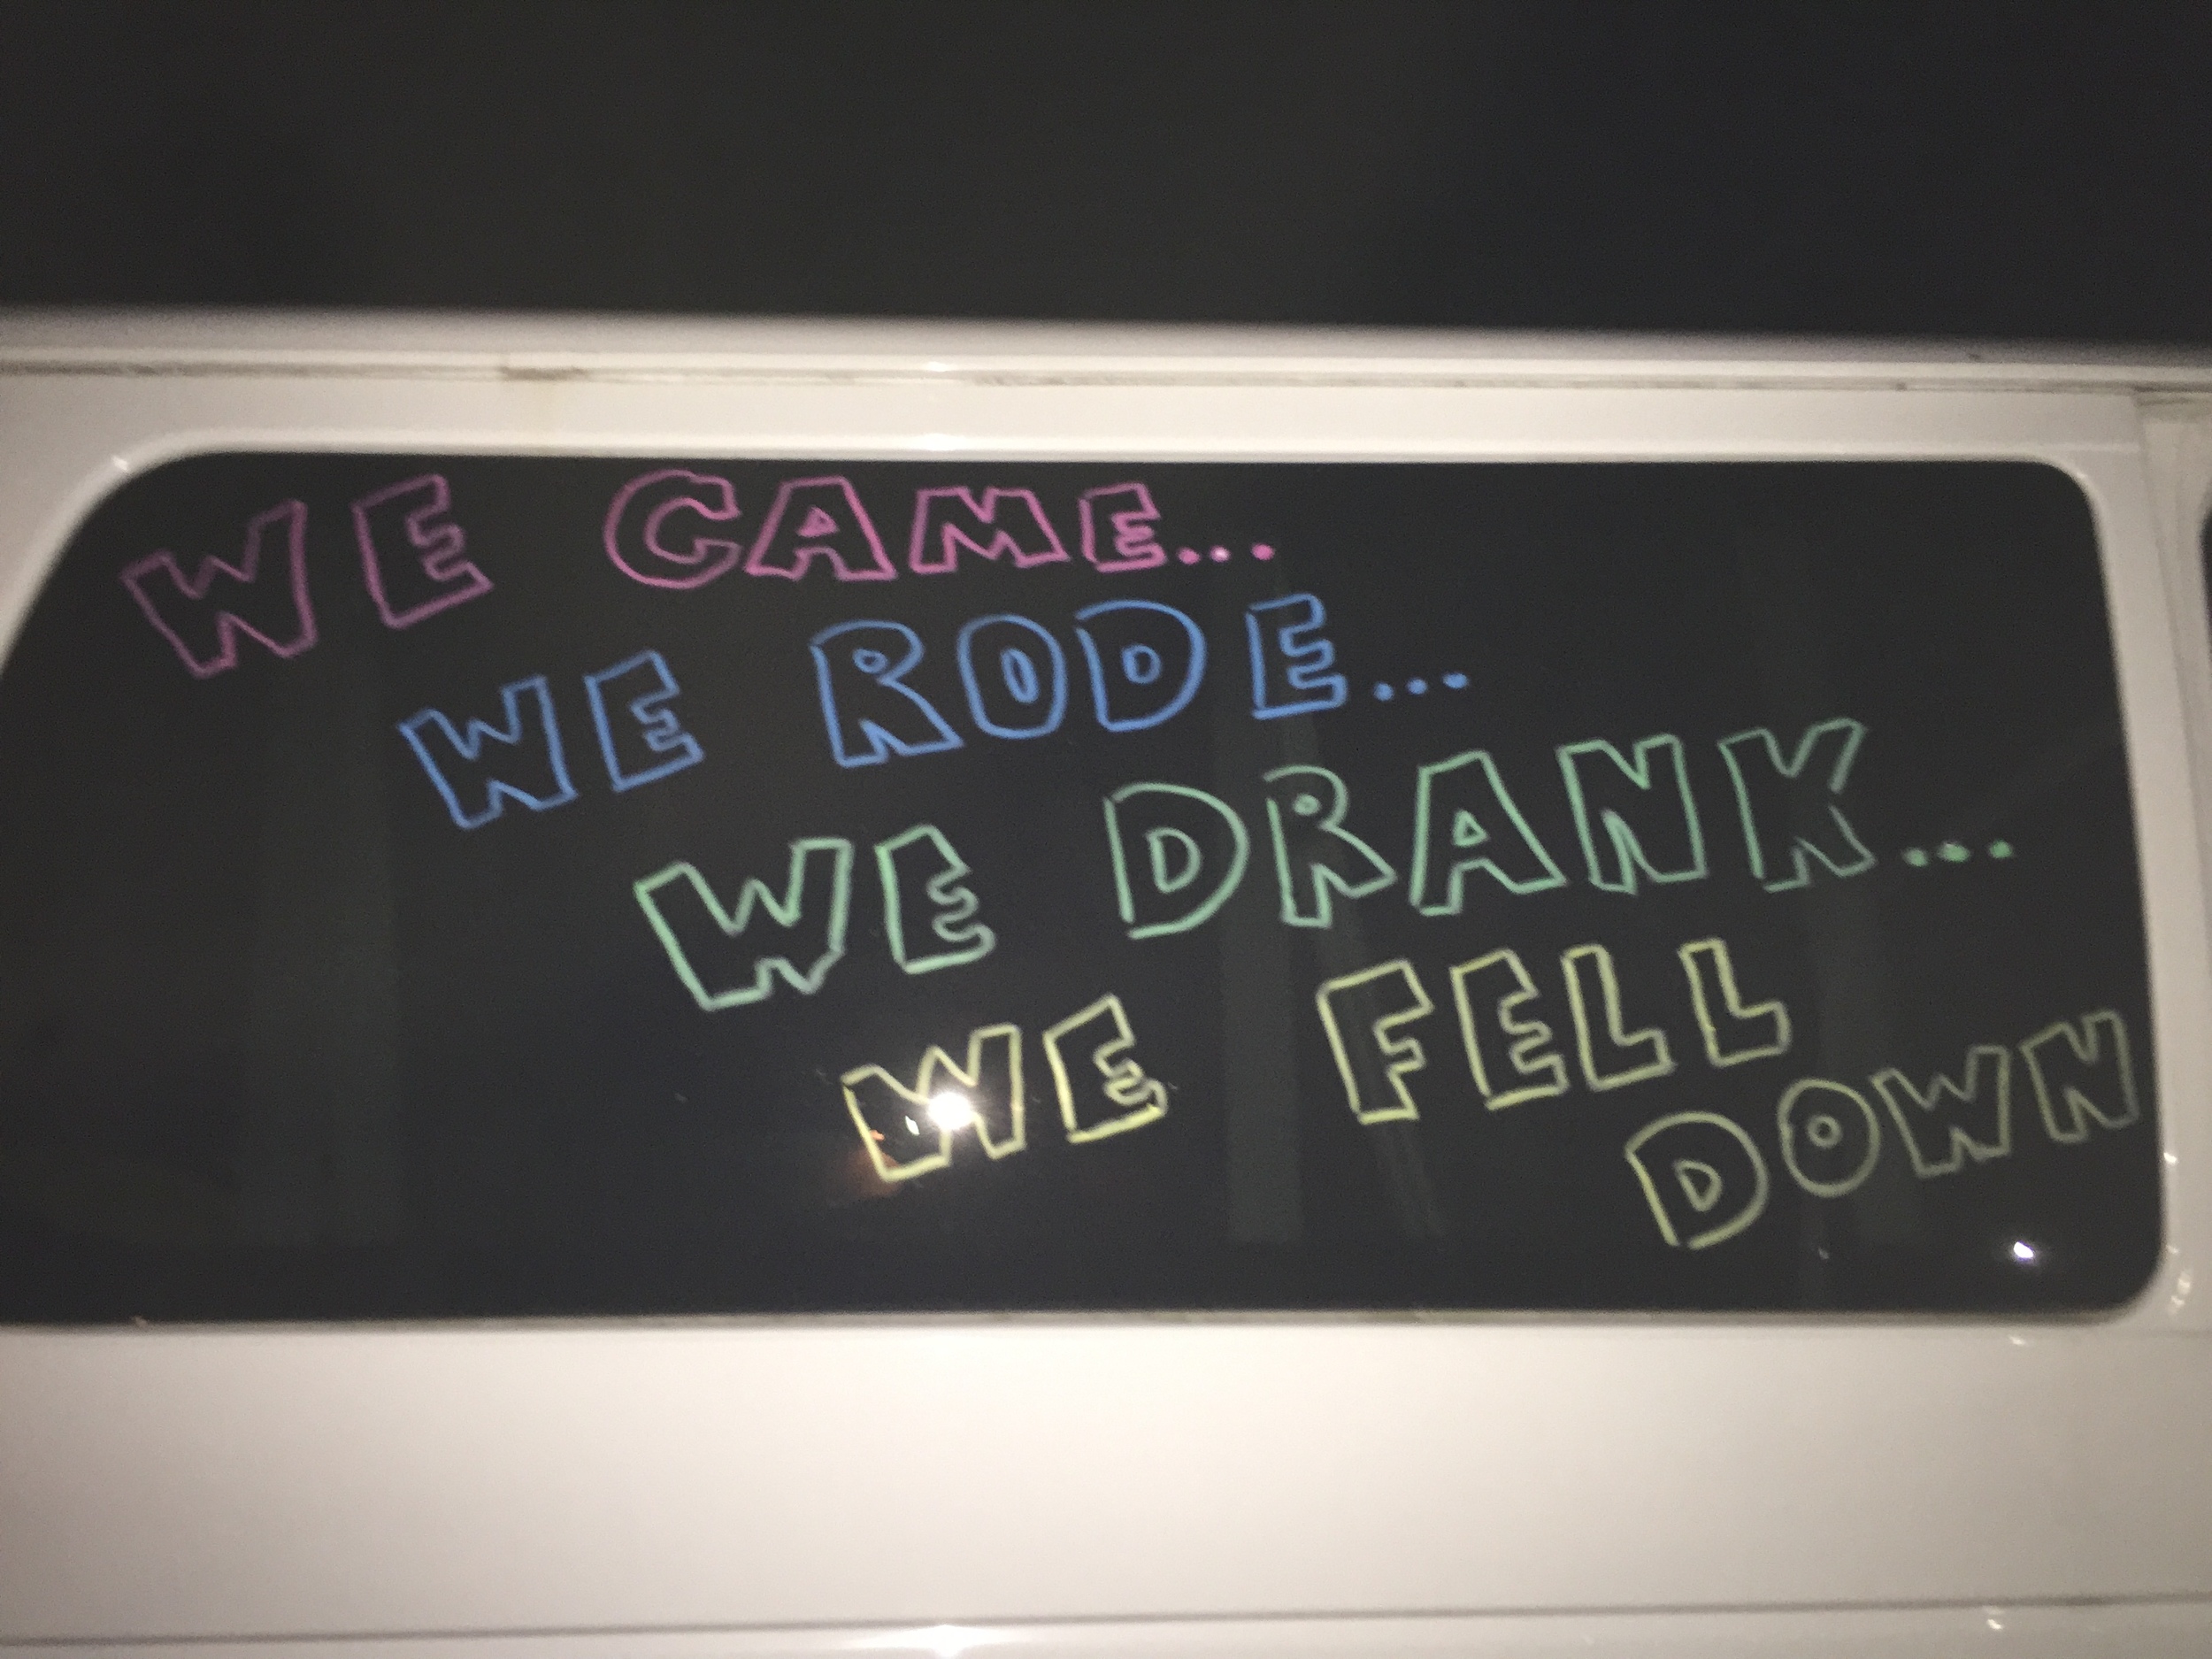 WE CAME...
WE RODE...
WE DRANK...
WE FELL
DOWN